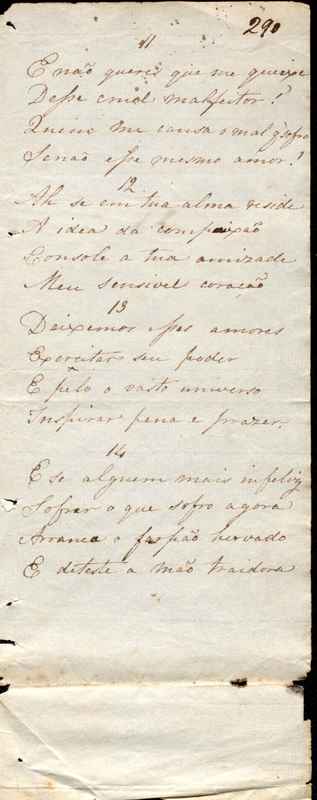 290
11
E não queres que me queixe
Desse cruel malfeitor!
Quem me causa o mal q̃ sofro
Senão esse mesmo amor!
12
Ah se em tua alma reside
A idea da compaixão
Console a tua amizade
Meu sensivel coração
13
Deixemos esses amores
Exercitar seu poder
E pelo o vasto universo
Inspirar pena e prazer.
14
E se alguem mais infeliz
Sofrer o que sofro agora
Arranca o farpão hervado
E deteste a mão traidora